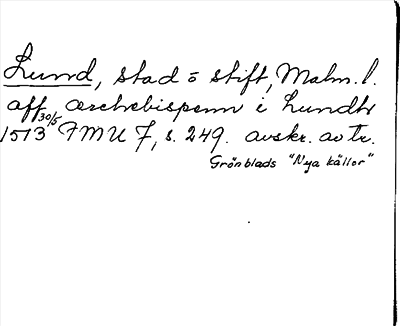 Lund, stad o stift, Malm. l.
aff ærchebispenn i Lundh
30/5 1513 FMU 7, s. 249. avskr. av tr.
Grönblads "Nya källor"